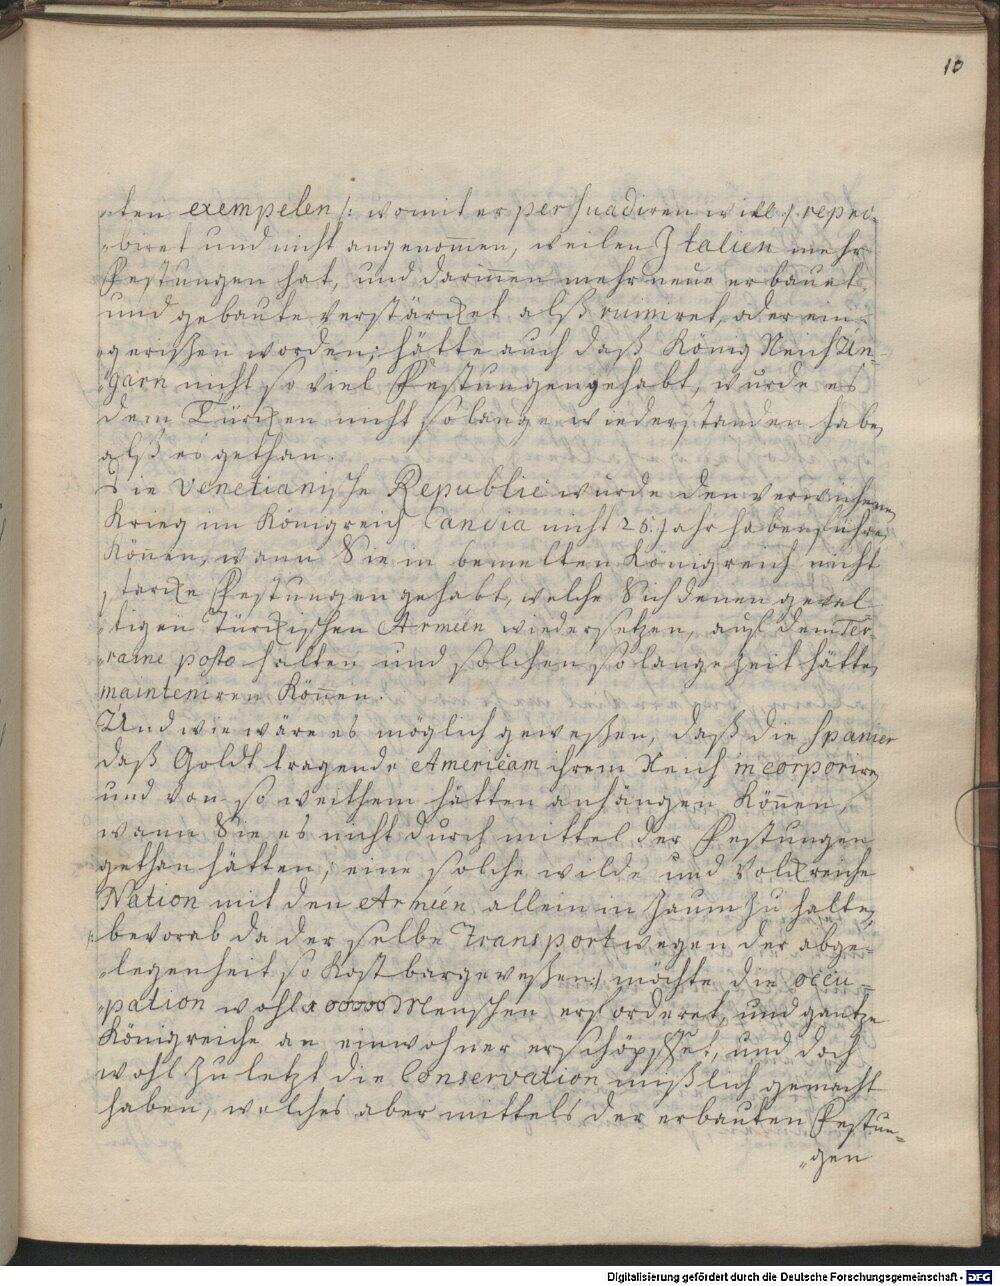 10
„ten exempelen /: womit er persuadiren will :/ repro-
„biret und nicht angenommen, weilen Jtalien mehr
Festungen hat, und darinnen mehr neue erbauet,
und gebaute verstärcket alß ruiniret, oder ein-
„gerißen worden; hätte auch daß König Reich Un-
„garn nicht so viel Festungen gehabt, wurde es
dem Türcken nicht so lange wiederstanden haben,
alß es gethan.
Die Venetianische Republic wurde den verwichenen
Krieg im Königreich Candia nicht 25: Jahr haben führen
können, wann Sie in bemelten Königreich nicht
starcke Festungen gehabt, welche Sich denen gewal-
„tigen Türckischen Arméen wiedersetzen, auf dem Ter-
„raine posto halten und solchen so lange Zeit hätten
mainteniren können.
Und wie wäre es möglich geweßen, daß die Spanier
daß Goldt tragende Americam ihrem Reich incorporiren
und von so weithem hätten anhängen können,
wann Sie es nicht durch mittel der Festungen
gethan hätten; eine solche wilde und Volckreiche
Nation mit den Arméen allein in Zaum zu halten,
/: bevorab da der selbe Transport wegen der abge-
„legenheit so kostbar geweßen :/ möchte die occu-
„pation wohl 100000 Menschen erforderet, und gantze
Königreiche an einwohner erschöpffet, und doch
wohl zu letzt die Conservation mißlich gemacht
haben, welches aber mittels der erbauten Festun-
„gen
Digitalisierung gefördert durch die Deutsche Forschungsgemeinschaft - DFG